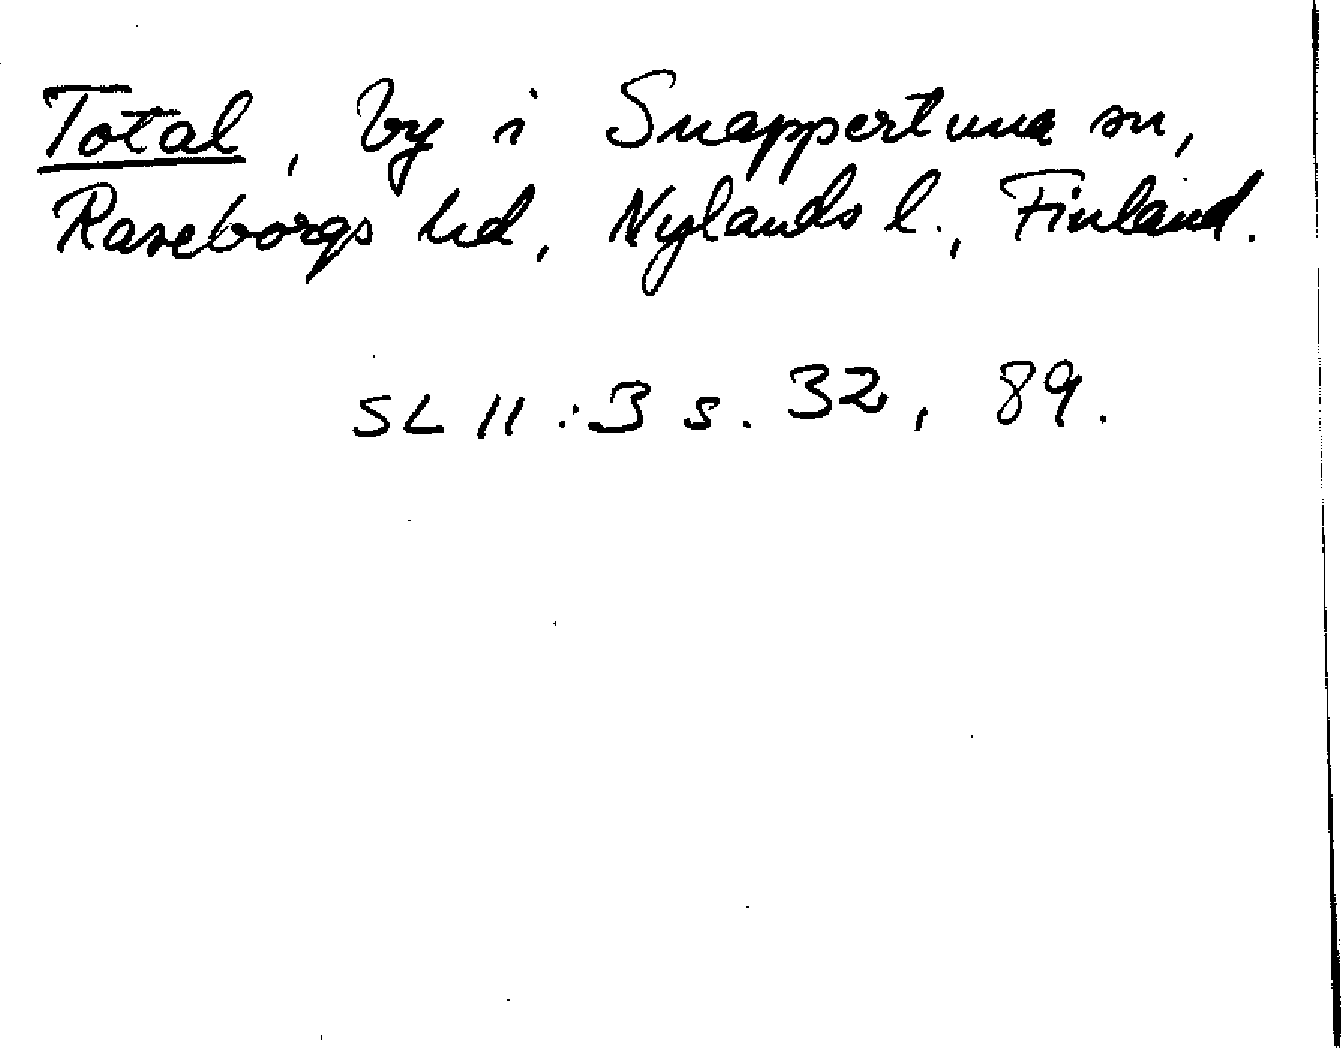 Total, by i Snappertuna sn,
Raseborgs hd, Nylands l., Finland.
SL 11:3 s. 32, 89.